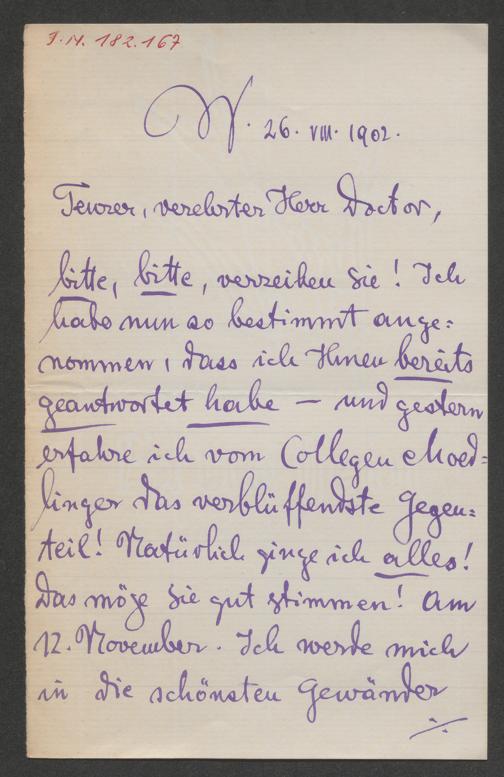 J.N. 182.167
W. 26. VIII. 1902.
Teurer, verehrter Herr Doctor,
bitte, bitte, verzeihen Sie! Ich
habe nun so bestimmt ange=
nommen, dass ich Ihnen bereits
geantwortet habe — und gestern
erfahre ich vom Collegen Moed=
linger das verblüffendste Gegen=
teil! Natürlich ginge ich alles!
Das möge Sie gut stimmen! Am
12. November. Ich werde mich
in die schönsten Gewänder
./.